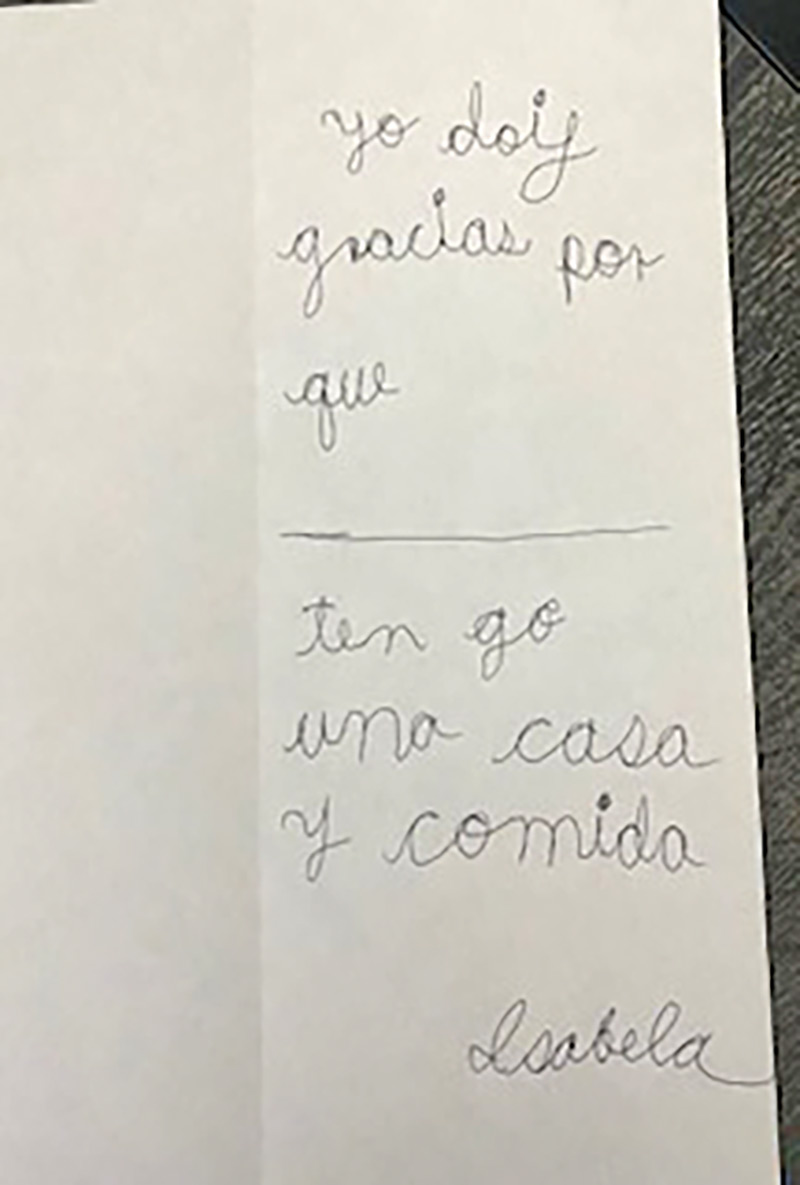 yo doiy
gracias por
que
ten go
una casa
y comida
Isabela